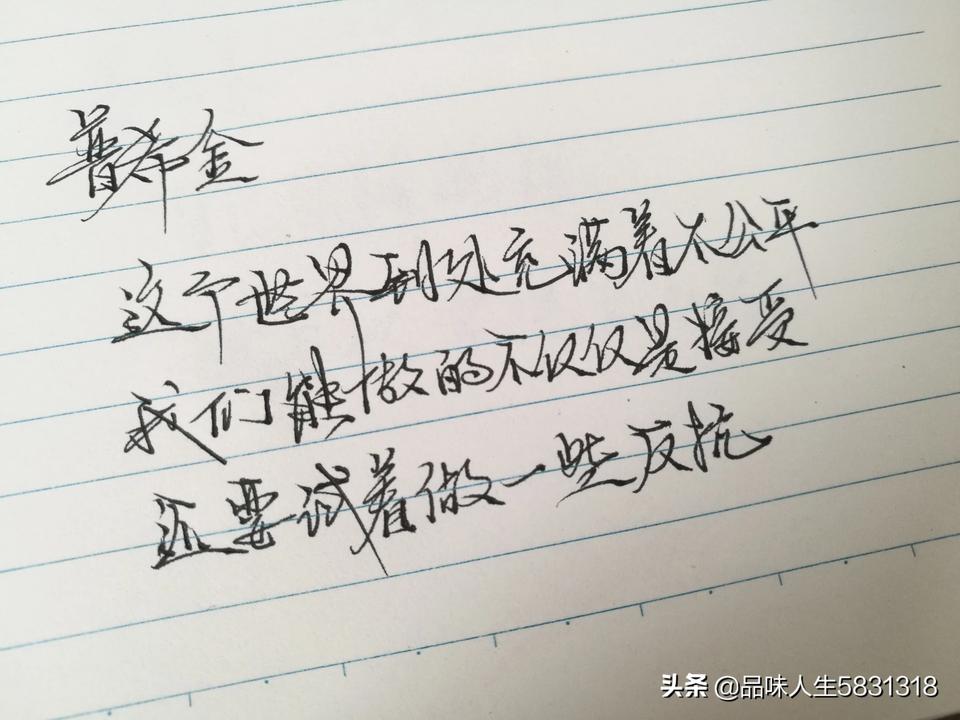 普希金
这个世界到处充满着不公平
我们能做的不仅仅是接受
还要试着做一些反抗
头条 @品味人生5831318